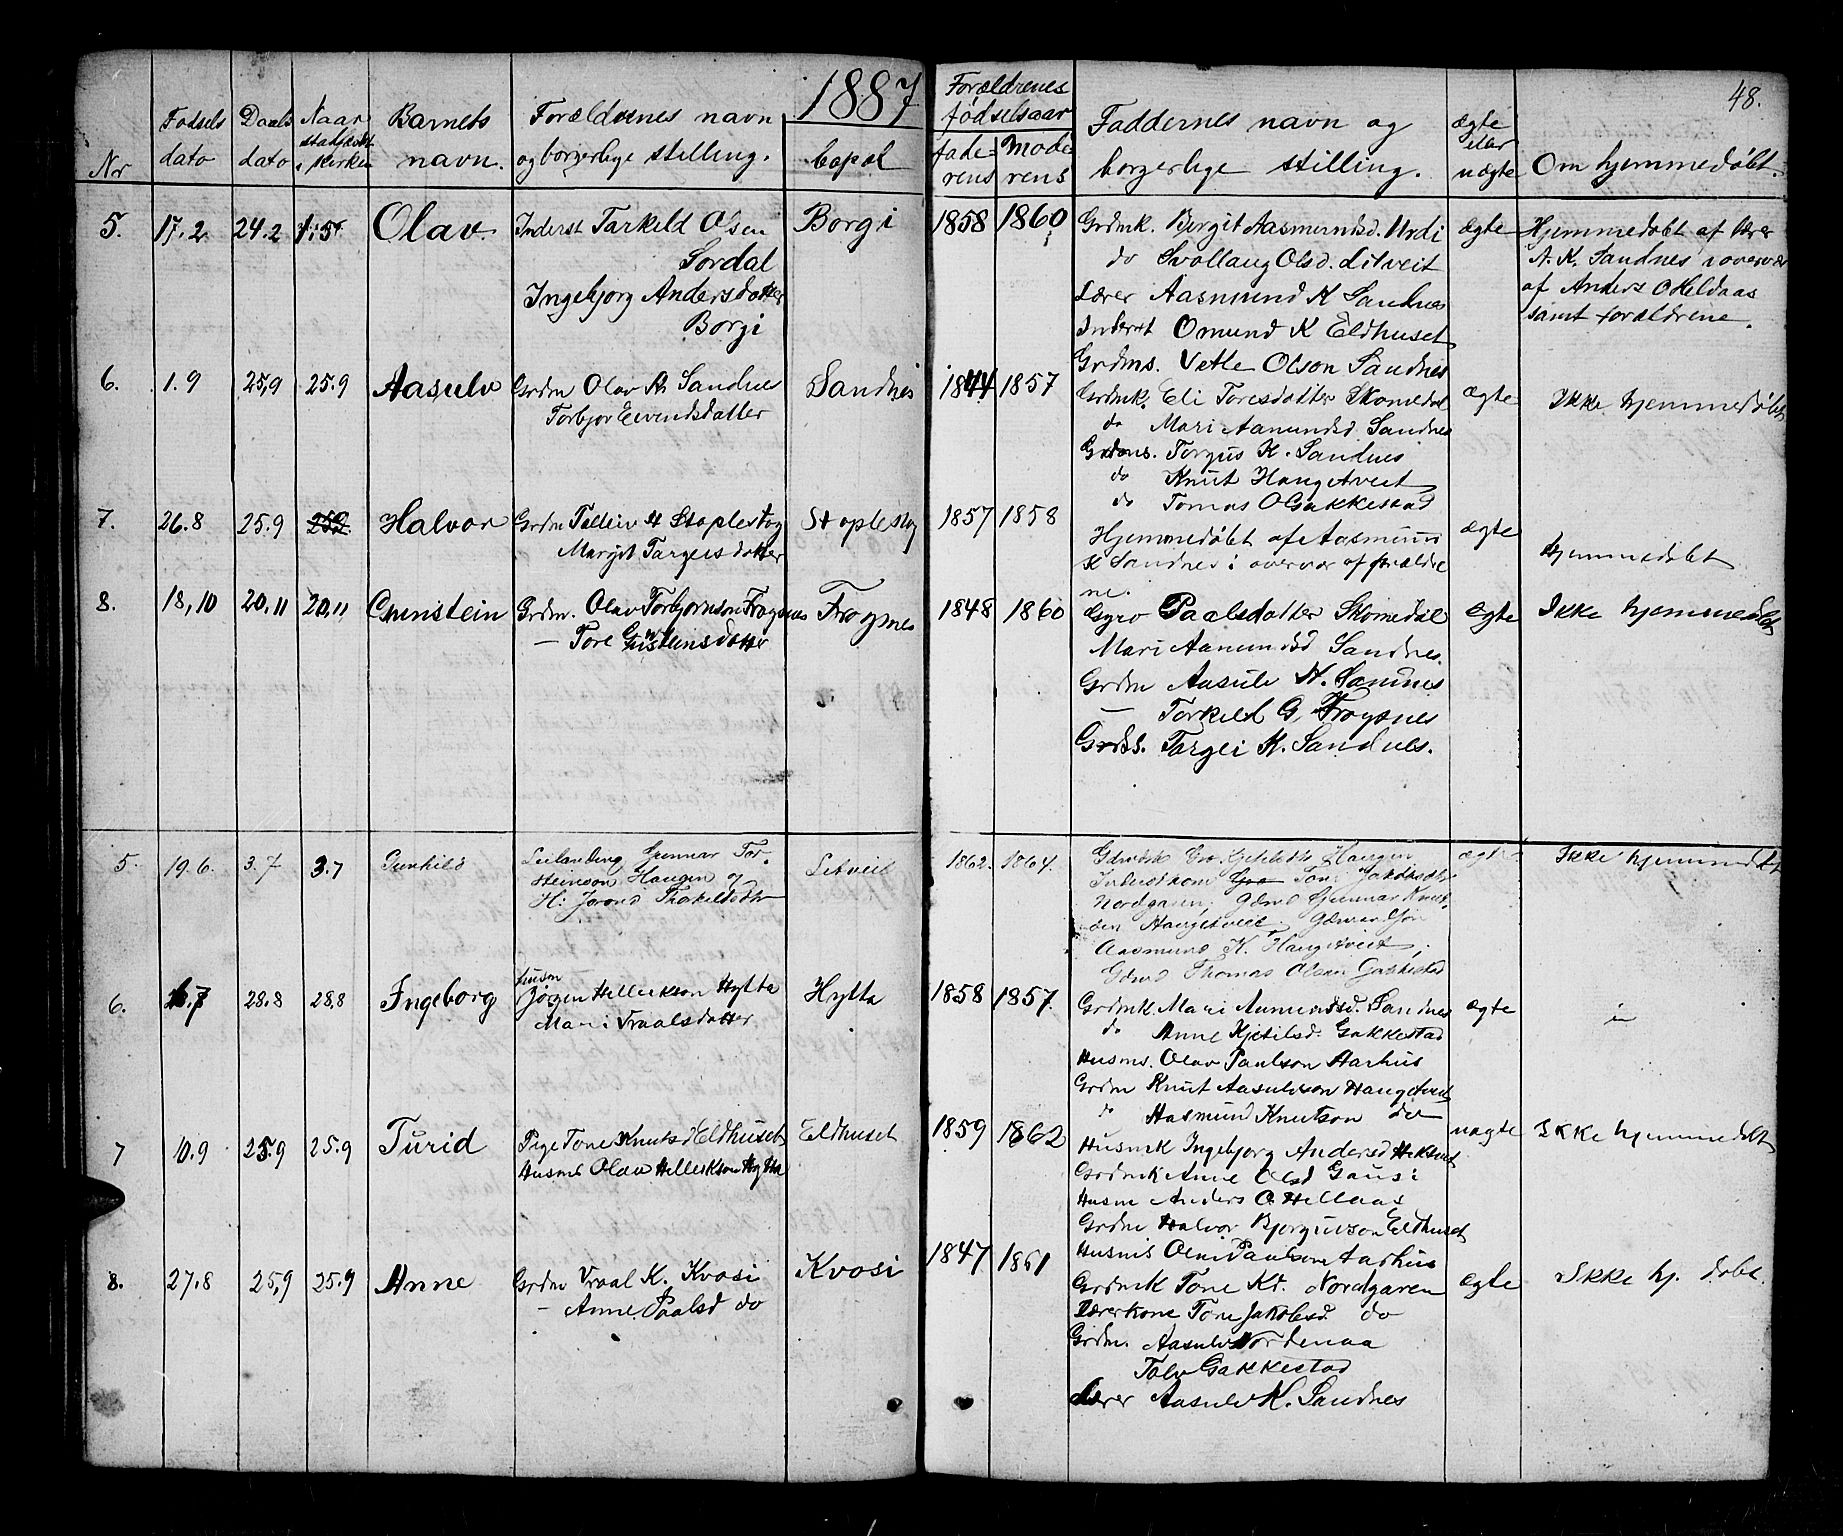 1887
48.
Nr
Fødsels dato
Daabs dato
Naar stadfæstet i Kirken
Barnets navn.
Forældrenes navn og borgerlige stilling.
bopæl
Forældrenes fødselsaar
faderens
moderens
Faddernes navn og borgerlige stilling.
ægte eller uægte
Om hjemmedøbt.
5. 17.2 24.2 Olav
Inderst Tarkeld Olsen
Sordal
Ingebjorg Andersdatter
Borgi
Borgi
1858 1860
Grdmk. Bergit Aasmundsd. Urdi
do Svollaug Olsd. Litveit
Lærer Aasmund K Sandnes
Inderst Omund K Eldhuset
Grdms. Vetle Olson Sandnes
ægte
Hjemmedøbt af lærer
A. K. Sandnes i overvær
af Anders O Heldaas
samt forældrene.
6. 1.9 25,9 25.9 Aasulv
Grdm Olav A. Sandnes
Torbjor Eivindsdatter
Sandnes
1844 1857
Grdmk. Eli Toresdatter Skomedal
do Mari Aanundsd. Sandnes
Grdms. Torgus K. Sandnes
do Knut Haugetveit
do Tomas O Gakkestad
ægte
Ikke hjemmedøbt
7. 26.8 25.9 25.9 Halvor
Grdm Talleiv H Stapleskog
Margit Targeisdatter
Stapleskog
1857 1858
Hjemmedøbt af Aasmund
K Sandnes i overvær af forældre
ne.
ægte
hjemmedøbt
8. 18,10 20,11 20,11 Gunstein
Grdm. Olav Torbjornson Frøysnes
— Tore Gunsteinsdatter
Frøysnes
1848 1860
Gyro Paalsdatter Skomedal
Mari Aanundsd Sandnes.
Grdm Aasulv K. Sandnes
— Torkeld G. Frøysnes
Grds. Targei K. Sandnes.
ægte
Ikke hjemmedøbt
5. 19.6. 3.7 3.7 Gunhild
Leilænding Gunnar Tor-
steinson Haugen og
H: Jorond Thokelsdtr
Litveit
1862. 1864.
Haugen
Inderstkone Gro Jakobsdtr
Nordgaren, Gdmd Gunnar Knut-
Haugetveit
Aasmund K. Haugetveit,
Gdmd Thomas Olsen Gakkestad
ægte
Ikke hjemmedøbt
6. 28.8 28,8 Ingeborg
husm
Jørgen Hellerkson Hytta
Mari Vraalsdatter
Hytta
1858 1857
Grdmk. Mari Aanundsd. Sandnes
do Anne Kjetilsd. Gakkestad
Husms. Olav Paulson Aarhus
Grdm Knut Aasulvson Haugetveit
do Aasmund Knutson do
ægte
"
7 10.9 25.9 25.9 Turid
Pige Tone Knutsd Eldhuset
Husms Olav Hellerkson Hytta
Eldhuset
1859 1862
Husmk Ingebjorg Andersd
Grdmk Anne Olsd
Husm Anders O. Hellaas
Grdm Halvor Bjorgufson Eldhuset
Husms Paulson Aarhus
uægte
Ikke hjemmedøbt
8. 27.8 25,9 25.9 Anne
Grdm Vraal K. Kvosi
— Anne Paalsd do
Kvosi
1847 1861
Grdmk Tone Kd. Nordgaren
Lærerkone Tone Jakobsd. do
Grdm. Aasulv Nordenaa
Talv Gakkestad
Lærer Aasulv K. Sandnes
ægte
Ikke hj. døbt